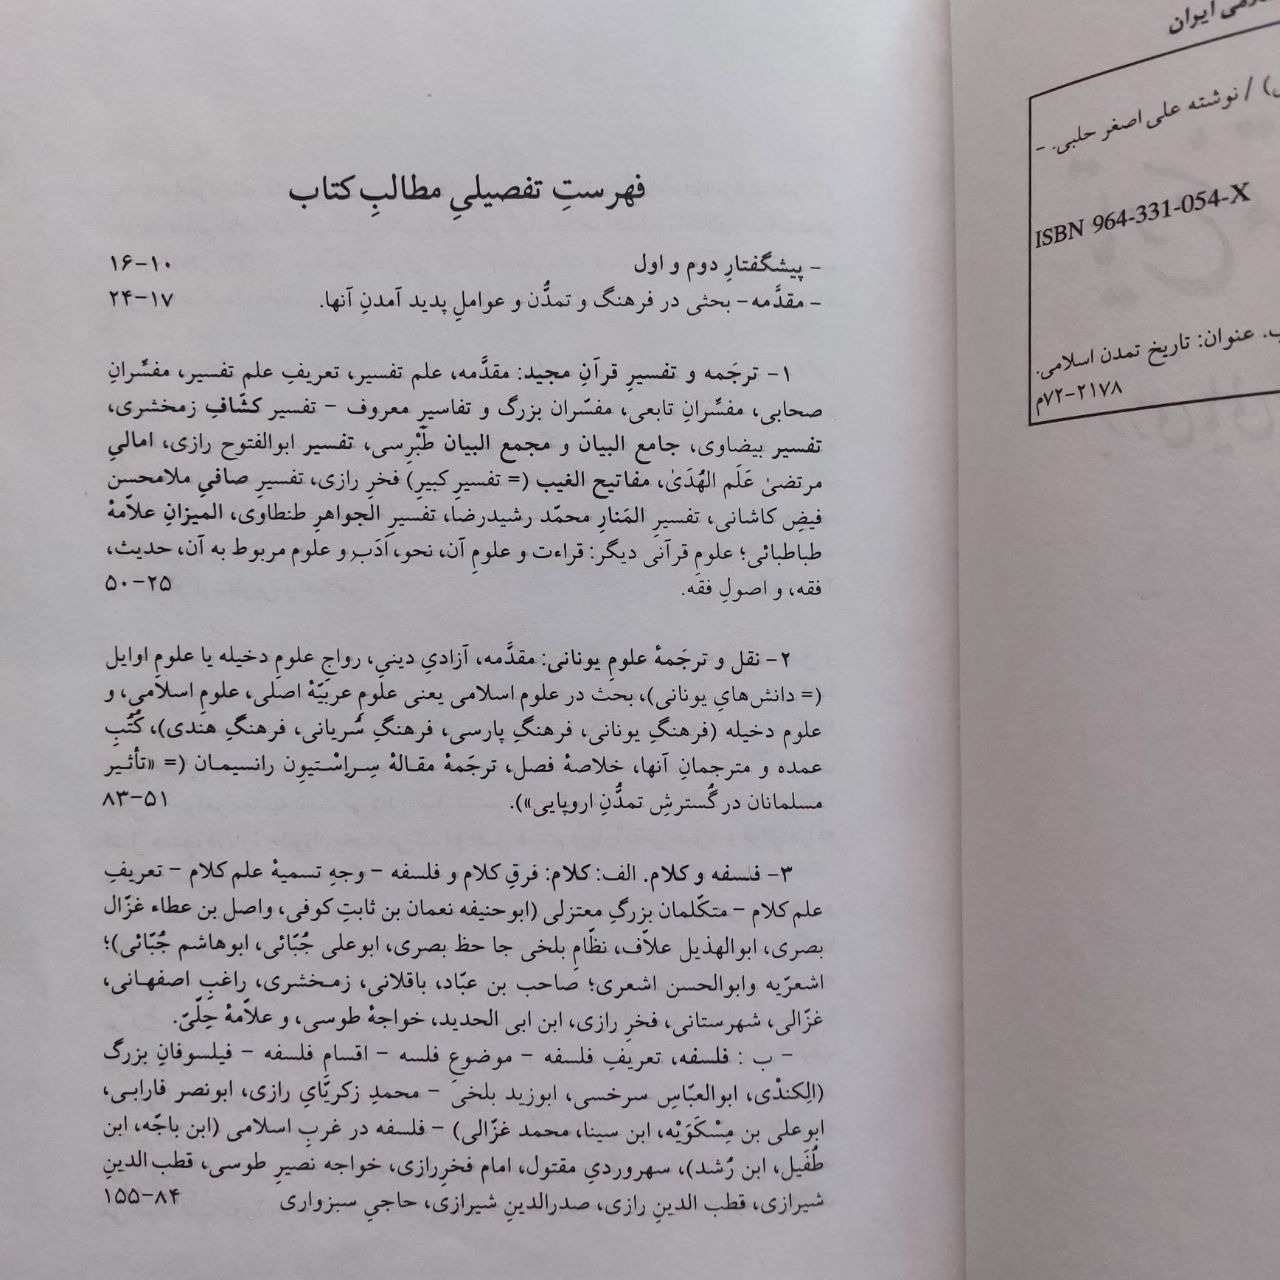 لامی ایران
) / نوشته علی اصغر حلبی. -
ISBN 964-331-054-X
ب. عنوان: تاریخ تمدن اسلامی.
۷۲-۲۱۷۸م
فهرستِ تفصیلیِ مطالبِ کتاب
- پیشگفتارِ دوم و اول ۱۰-۱۶
- مقدَّمه- بحثی در فرهنگ و تمدُّن و عواملِ پدید آمدنِ آنها. ۱۷-۲۴
۱- ترجَمه و تفسیرِ قرآنِ مجید: مقدَّمه، علم تفسیر، تعریفِ علم تفسیر، مفسِّرانِ
صحابی، مفسِّرانِ تابعی، مفسّران بزرگ و تفاسیرِ معروف - تفسیر کشّافِ زمخشری،
تفسیر بیضاوی، جامع البیان و مجمع البیان طَبْرِسی، تفسیر ابوالفتوح رازی، امالیِ
مرتضیٰ عَلَم الهُدَیٰ، مفاتیح الغیب (= تفسیرِ کبیرِ) فخرِ رازی، تفسیرِ صافیِ ملامحسن
فیضِ کاشانی، تفسیرِ المَنارِ محمّد رشیدرضا، تفسیرِ الجواهرِ طنطاوی، المیزانِ علاّمهٔ
طباطبائی؛ علومِ قرآنی دیگر: قراءت و علومِ آن، نحو، اَدَب و علوم مربوط به آن، حدیث،
فقه، و اصولِ فقه. ۲۵-۵۰
۲- نقل و ترجَمهٔ علومِ یونانی: مقدَّمه، آزادیِ دینی، رواجِ علومِ دخیله یا علومِ اوایل
(= دانش‌هایِ یونانی)، بحث در علوم اسلامی یعنی علومِ عربیّهٔ اصلی، علومِ اسلامی، و
علوم دخیله (فرهنگِ یونانی، فرهنگِ پارسی، فرهنگِ سُریانی، فرهنگِ هندی)، کُتُبِ
عمده و مترجمانِ آنها، خلاصهٔ فصل، ترجَمهٔ مقالهٔ سِراِسْتیوِن رانسیمان (= «تأثیر
مسلمانان در گُسترشِ تمدُّنِ اروپایی»). ۵۱-۸۳
۳- فلسفه و کلام. الف: کلام: فرقِ کلام و فلسفه - وجهِ تسمیهٔ علم کلام - تعریفِ
علم کلام - متکّلمان بزرگِ معتزلی (ابوحنیفه نعمان بن ثابتِ کوفی، واصل بن عطاء غزّال
بصری، ابوالهذیل علاّف، نظّامِ بلخی جا حظ بصری، ابوعلی جُبّائی، ابوهاشم جُبّائی)؛
اشعرّیه وابوالحسن اشعری؛ صاحب بن عبّاد، باقلانی، زمخشری، راغبِ اصفهانی،
غزّالی، شهرستانی، فخرِ رازی، ابن ابی الحدید، خواجهٔ طوسی، و علاّمهٔ حِلّیّ.
- ب : فلسفه، تعریفِ فلسفه - موضوعِ فلسه - اقسامِ فلسفه - فیلسوفانِ بزرگ
(الِکنْدْی، ابوالعبّاسِ سرخسی، ابوزید بلخی - محمدِ زکریّایِ رازی، ابونصر فارابی،
ابوعلی بن مِسْکَوَیْه، ابن سینا، محمد غزّالی) - فلسفه در غربِ اسلامی (ابن باجّه، ابن
طُفَیل، ابن رُشد)، سهروردیِ مقتول، امام فخرِرازی، خواجه نصیرِ طوسی، قطب الدینِ
شیرازی، قطب الدینِ رازی، صدرالدینِ شیرازی، حاجیِ سبزواری ۸۴-۱۵۵